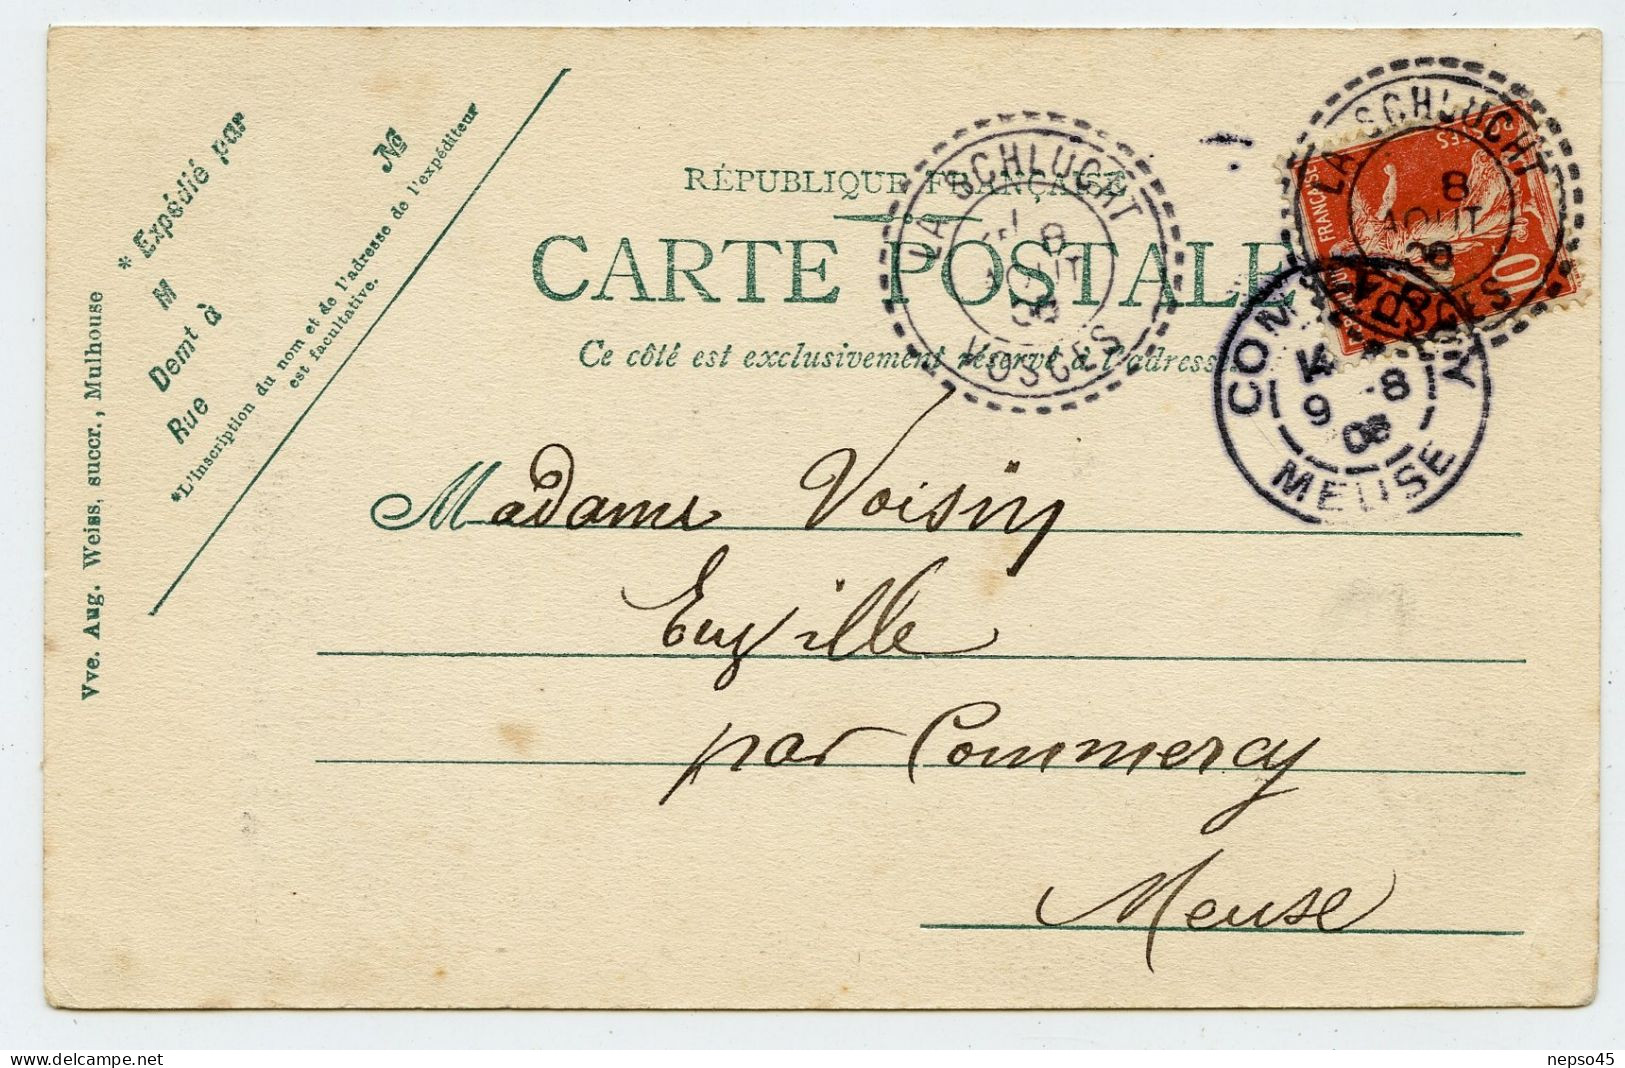 * Expédié par
M
Demt à
Rue
No
*L'inscription du nom et de l'adresse de l'expéditeur
est facultative.
Vve. Aug. Weiss, succr., Mulhouse
RÉPUBLIQUE FRANÇAISE
CARTE POSTALE
Ce côté est exclusivement réservé à l'adresse.
LA SCHLUCHT
8
AOUT
08
VOSGES
LA SCHLUCHT
8
AOUT
VOSGES
10
COMMERCY
9 -8
08
MEUSE
Madame Voisin
Euville
par Commercy
Meuse
nepso45